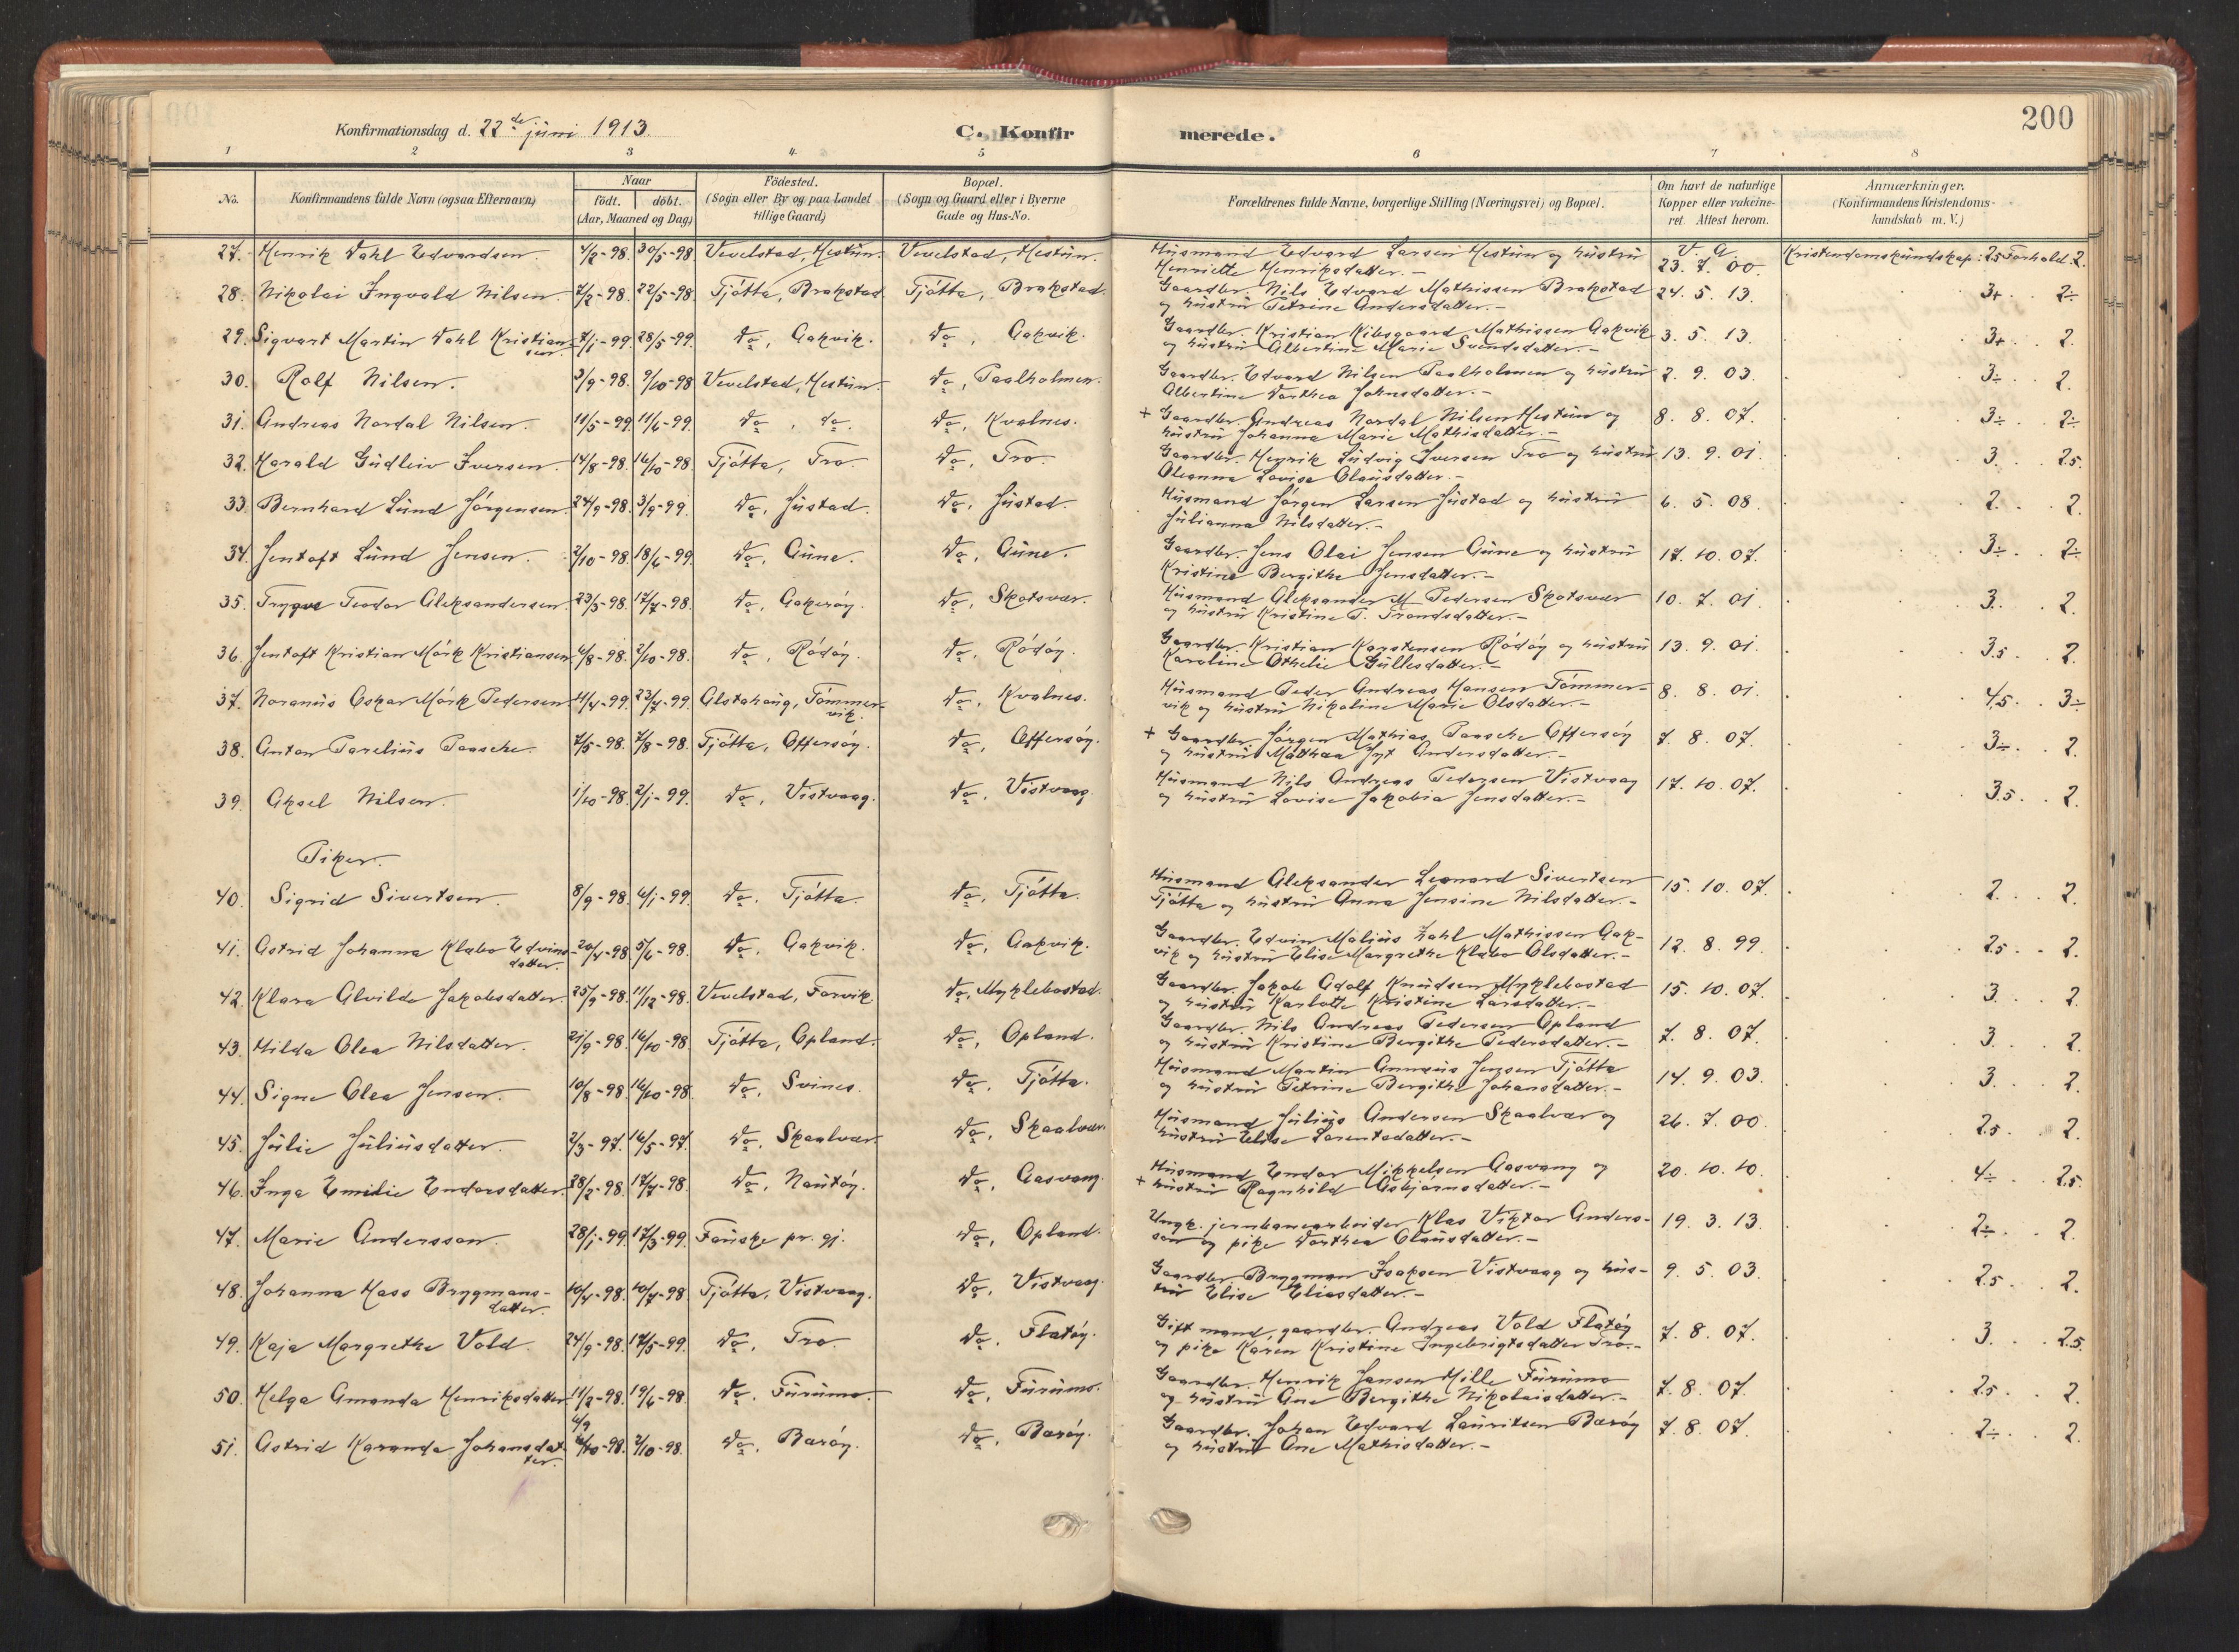 200
Konfirmationsdag d. 22de juni 1913.
C. Konfirmerede.
1 2 3 4. 5 6 7 8
No. Konfirmandens fulde Navn (ogsaa Efternavn) Naar födt. döbt. (Aar, Maaned og Dag) Födested. (Sogn eller By og paa Landet tillige Gaard) Bopæl. (Sogn og Gaard eller i Byerne Gade og Hus-No. Forældrenes fulde Navne, borgerlige Stilling (Næringsvei) og Bopæl. Om havt de naturlige Kopper eller vakcineret Attest herom. Anmærkninger. (Konfirmandens Kristendomskundskab m. V.)
27. Henrik Dahl Edvardsen. 4/2-98. 30/5-98 Vevelstad, Hestün. Vevelstad, Hestün. Husmand Edvard Larsen Hestün og hüstrü V. A. Kristendomskundskap: 2.5 Forhold: 2.
Henriette Henriksdatter. - 23. 7. 00.
28. Nikolai Ingvald Nilsen. 7/2-98. 22/5-98. Tjötta, Brakstad Tjötta, Brakstad. Gaardbr. Nils Edvard Mathissen Brakstad 24. 5. 13. 3+ . . 2÷
og hüstrü Petrine Andersdatter. -
29. Sigvart Martin Dahl Kristian- 7/1-99. 28/5-99. do, Aakvik. do, Aakvik. Gaardbr. Kristian Kilsgaard Mathissen Aakvik 3. 5. 13. 3+ . . 2.
sen. og hüstrü Albertine Marie Svendsdatter. -
30. Rolf Nilsen. 3/9-98. 9/10-98 Vevelstad, Hestün. do, Paalholmen. Gaardbr. Edvard Nilsen Paalholmen og hüstrü 2. 9. 03. 3÷ . . 2.
Albertine Dorthea Johnsdatter. -
31. Andreas Nordal Nilsen. 10/5-99 11/6-99. do, do. do, Kvalnes. + Gaardbr. Andreas Nordal Nilsen Hestün og 8. 8. 07. 3÷ . . 2÷
hüstrü Johanna Marie Mathisdatter. -
32. Harald Güdleiv Iversen. 14/8-98. 16/10-98. Tjötta, Tro. do, Tro. Gaardbr. Henrik Lüdvig Iversen Tro og hüstrü 13. 9. 01. 3. . . 2.5.
Oleanna Lovise Olaüsdatter. -
33. Bernhard Lünd Jörgensen. 24/9-98. 3/9-99. do, Jüstad. do, Jüstad. Hüsmand Jörgen Larsen Jüstad og hüstrü 6. 5. 08. 2. . . 2.
Jülianna Nilsdatter. -
34. Jentoft Lünd Jensen. 2/10-98. 18/6-99. do, Aüne. do, Aüne. Gaardbr. Jens Olai Jensen Aüne og hüstrü 17. 10. 07. 3÷ . . 2÷
Kristine Bergithe Jensdatter. -
35. Trygve Teodor Aleksandersen. 23/5-98. 17/7-98. do, Aakeröy. do, Skotsvær. Hüsmand Aleksander M Pedersen Skotsvær 10. 7. 01. 3. . . 2.
og hüstrü Kristine T. Trondsdatter. -
36. Jentoft Kristian Mörk Kristiansen 6/8-98. 2/10-98. do, Rödöy. do, Rödöy. Gaardbr. Kristian Karstensen Rödöy og hüstrü 13. 9. 01. 3.5 . . 2.
Karoline Othelie Güllesdatter. -
37. Noranüs Oskar Mörk Pedersen 11/4-99. 23/7-99. Alstahaüg, Tömmer- do, Kvalnes. Hüsmand Peder Andreas Hansen Tömmer- 8. 8. 01. 4.5 . . 3÷
vik. vik og hüstrü Nikoline Marie Olsdatter. -
38. Anton Parelius Paasche. 7/5-98. 7/8-98. Tjötta, Offersöy. do, Offersöy. + Gaardbr. Jörgen Mathias Paasche Offersöy 7. 8. 07. 3÷ . . 2.
og hüstrü Matthea Jyt Andersdatter. -
39. Aksel Nilsen. 1/10-98. 2/1-99. do, Vistvaag. do, Vistvaag. Hüsmand Nils Andreas Pedersen Vistvaag 17. 10. 07. 3.5 . . 2.
og hüstrü Lovise Jakobia Jensdatter. -
Piker.
40. Sigrid Sivertsen. 8/9-98. 6/1-99. do, Tjötta. do, Tjötta. Hüsmand Aleksander Leonard Sivertsen 15. 10. 07. 2. . . 2.
Tjötta og hüstrü Anna Jensine Nilsdatter. -
41. Astrid Johanna Klæbo Edvins- 20/4-98. 5/6-98. do, Aakvik. do, Aakvik. Gaardbr. Edvin Malius Dahl Mathissen Aak- 12. 8. 99. 2.5 . . 2.
datter. vik og hüstrü Elise Margrethe Klæbo Olsdatter. -
42. Klara Alvilde Jakobsdatter. 25/9-98. 11/12-98. Vevelstad, Forvik. do, Myklebostad. Gaardbr. Jakob Adolf Knüdsen Myklebostad 15. 10. 07. 3. . . 2.
og hüstrü Karlotte Kristine Larsdatter. -
43. Hilda Olea Nilsdatter. 21/9-98. 16/10-98. Tjötta, Opland. do, Opland. Gaardbr. Nils Andreas Pedersen Opland 7. 8. 07. 3. . . 2.
og hüstrü Kristine Bergithe Pedersdatter. -
44. Signe Olea Jensen. 10/8-98. 16/10-98. do, Svines. do, Tjötta. Hüsmand Martin Annæüs Jensen Tjötta 14. 9. 03. 3. . . 2.
og hüstrü Petrine Bergithe Johansdatter. -
45. Jülie Jüliüsdatter. 2/3-97. 16/5-97. do, Skaalvær. do, Skaalvær. Hüsmand Jüliüs Andersen Skaalvær og 26. 7. 00. 2.5 . . 2.
hüstrü Elise Larentsdatter. -
46. Inga Emilie Endorsdatter. 28/2-98. 17/7-98. do, Naütöy. do, Aasvang. Hüsmand Endor Mikkelsen Aasvang og 20. 10. 10. 4÷ . . 2.5.
+ hüstrü Ragnhild Asbjörnsdatter. -
47. Marie Andersson. 28/1-99. 17/3-99. Faüske pr. gj. do, Opland. Ungk. jernbanearbeider Klas Viktor Anders- 19. 3. 13. 2÷ . . 2.
son og pike Dorthea Olaüsdatter. -
48. Johanna Hass Brygmans- 10/4-98. 10/7-98. Tjötta, Vistvaag. do, Vistvaag. Gaardbr Brygman Isaksen Vistvaag og hüs- 9. 5. 03. 2.5 . . 2.
datter. trü Elise Eliasdatter. -
49. Kaja Margrethe Vold. 24/9-98. 17/5-99. do, Tro. do, Flatöy. Gift mand, gaardbr. Andreas Vold Flatöy 7. 8. 07. 3. . . 2.5.
og pike Karen Kristine Ingebrigtsdatter Tro. -
50. Helga Amanda Henriksdatter 11/2-98. 19/6-98. do, Fürümo. do, Fürümo. Gaardbr. Henrik Jansen Hille Fürümo 7. 8. 07. 2.5 . . 2.
og hüstrü Ane Bergithe Nikolaisdatter. -
51. Astrid Karanda Johansdat- 4/9 -98. 2/10-98. do, Baröy. do, Baröy. Gaardbr. Johan Edvard Laüritsen Baröy 7. 8. 07. 2÷ . . 2.
ter. og hüstrü Ane Mathisdatter. -